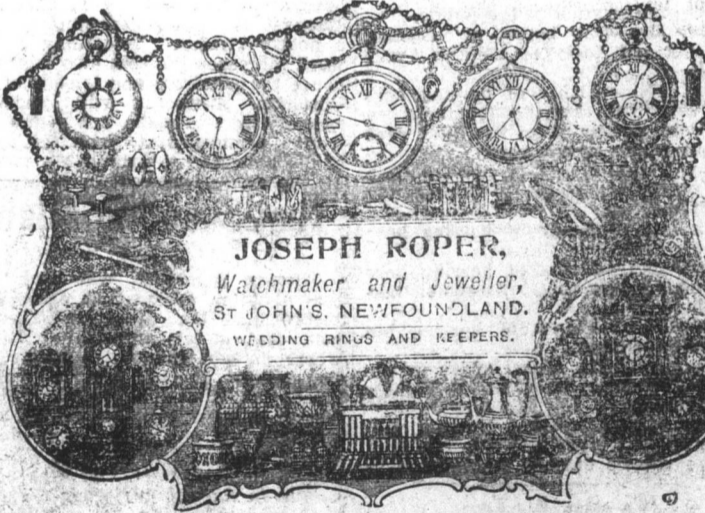 JOSEPH ROPER,
Watchmaker and Jeweller,
ST JOHN'S, NEWFOUNDLAND.
WEDDING RINGS AND KEEPERS.